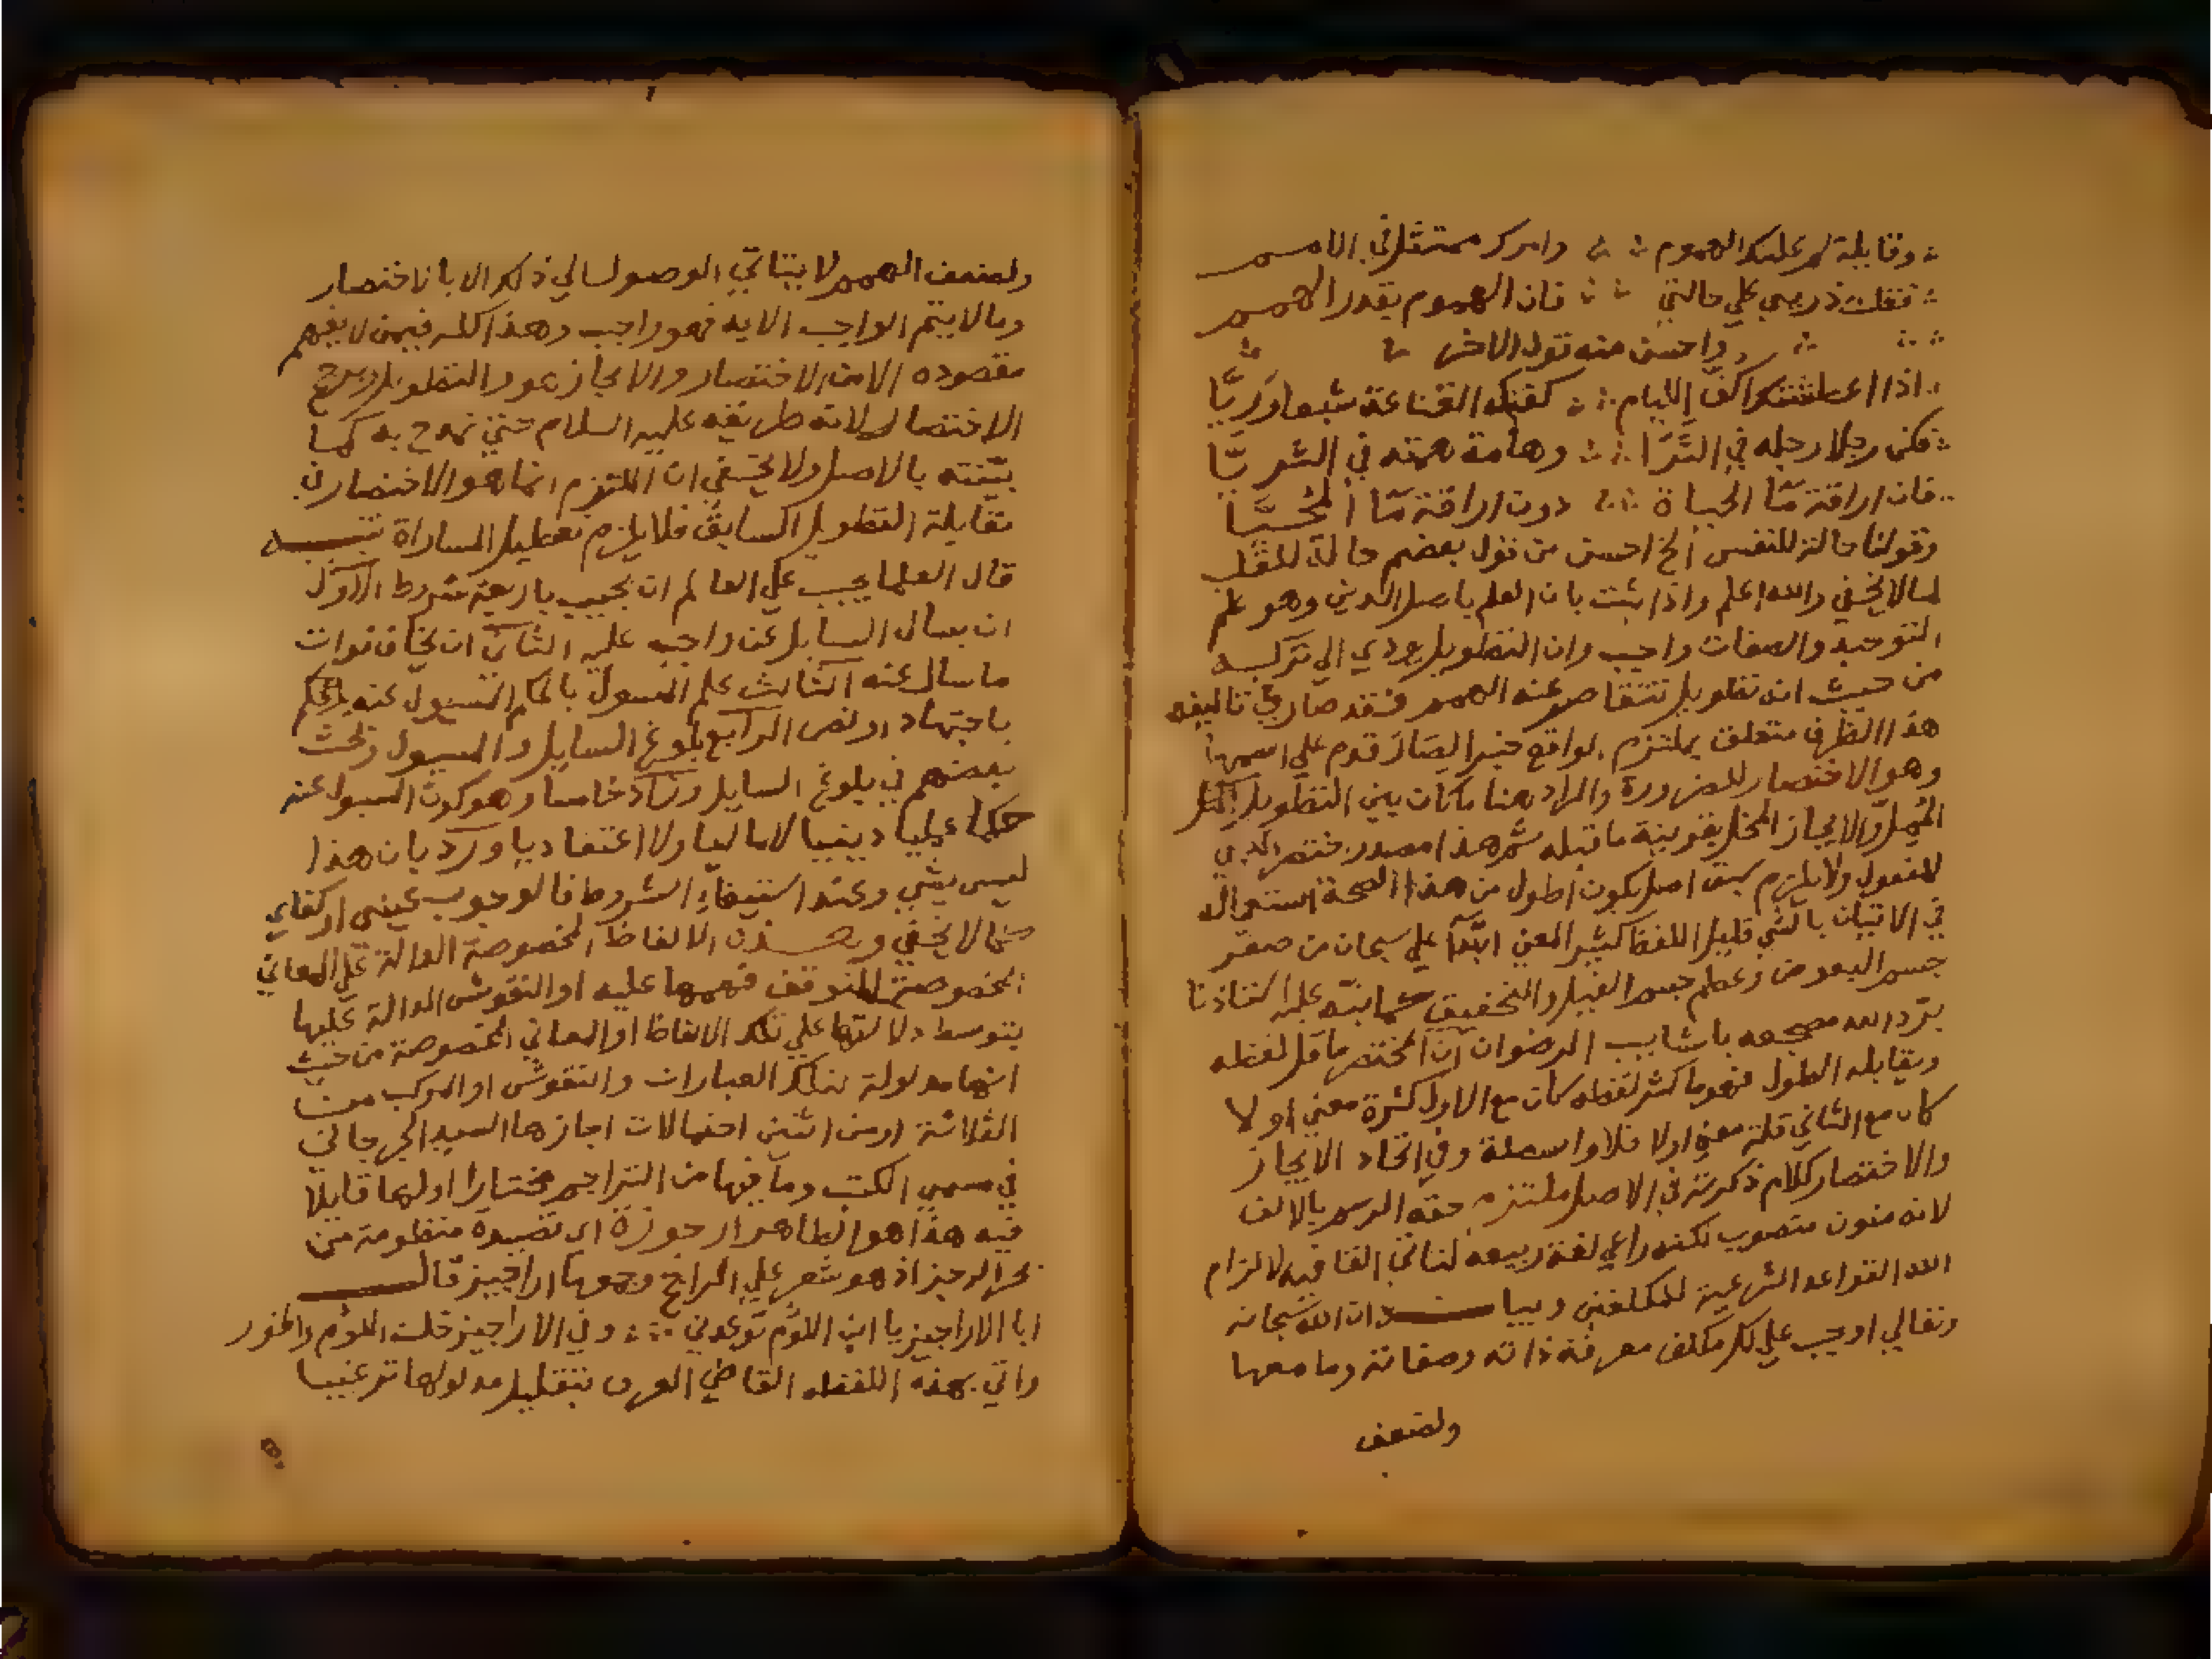 وقايلة لم علتك الهموم وامرك ممتثل في الامم
فقلت ذريني علي حالتي فان الهموم بقدر الهمم
واحسن منه قول الاخر
اذا اعطشتك اكف الليام كفتك القناعة شبعا وريّا
فكن رجلا رجله في الثَّرَا وهامة همته في الثريّا
فان اراقة مّا الحياة دون اراقة مّا المُحيَّا
وقولنا حالة للنفس الخ احسن من قول بعضهم حالة للقلب
لما لا يخفي والله اعلم واذا بثت بان العلم باصل الدين وهو علم
التوحيد والصفات واجب وان التطويل يودي الي تركه
من حيث انه تطويل تتقاصر عنه الهمم فقد صار في تاليفه
هذا الظرف متعلق بملتزم الواقع خبرا لصار قدم علي اسمها
وهو الاختصار للضرورة والمراد هنا ما كان بين التطويل
المُمِل والايجاز المخل بقرينة ما قبله ثم هذا مصدر
للمفعول ولا يلزم سبق اصل يكون اطول من هذا الصحة استعماله
في الاتيان بالشي قليل اللفظ كثير المعني ابتدآ علي سبحان من صغر
جسم البعوض وعظم جسم الفيل والتحقيق كما نبّه عليه استاذنا
برّد الله مضجعه باشابيب الرضوان ان المختصر ما قل لفظه
ويقابله المطول فهو ما كثر لفظه كان مع الاول كثرة معني اولا
كان مع الثاني قلة معني اولا فلا واسطة وفي اتحاد الايجاز
والاختصار كلام ذكرته في الاصل ملتزم حقه الرسم بالالف
لانه منون منصوب لكنه راعي لغة ربيعة لتاتي القافية لالزام
الله القواعد الشرعية للمكلفين وبيانه ان الله سبحانه
وتعالي اوجب علي كل مكلف معرفة ذاته وصفاته وما معها
ولضعف
ولضعف الهمم لا يتاتي الوصول الي ذلك الا بالاختصار
وما لا يتم الواجب الا به فهو واجب وهذا كله فيمن لا يفهم
مقصوده الا من الاختصار والايجاز هو والتطويل ويرجح
الاختصار لانه طريقه عليه السلام حتي تمدح به كما
بيّنته بالاصل ولا يخفي ان الملتزم انما هو الاختصار في
مقابلة التطويل السابق فلا يلزم تعطيل المساراة تنبيه
قال العلما يجب علي العالم ان يجيب باربعة شروط الاول
ان يسال السايل عن واجب عليه الثاني ان يخاف فوات
ما سال عنه الثالث علم المسول بالحكم المسيول عنه
باجتهاد او نص الرابع بلوغ السايل والمسيول وبحث
بعضهم في بلوغ السايل وزاد خامسا وهو كون المسول عنه
حكما عمليا دينيا لا ماليا ولا اعتقاديا ورد بان هذا
ليس بشي وعند استيفاءِ الشروط فالوجوب عيني او كفاي
كما لا يخفي وهذه الالفاظ المخصوصة الدالة علي المعاني
المخصوصة المتوقف فهمها عليه او النقوش الدالة عليها
بتوسط دلالتها علي تلك الالفاظ او المعاني المخصوصة من حيث
انها مدلولة لتلك العبارات والنقوش او المركب من
الثلاثة او من اثنين احتمالات اجازها السيد الجرجاني
في مسمي الكتب وما فيها من التراجم مختارا اولها قايلا
فيه هذا هو الظاهر ارجوزة اي قصيدة منظومة من
بحر الرجز اذ هو شعر علي الراجح وجمعها اراجيز قال
ابا الاراجيز يا ابن اللؤم توعدني وفي الاراجيز خلت اللؤم والخور
واتي بهذه اللفظه القاضي العرف بتقليل مدلولها ترغيبا